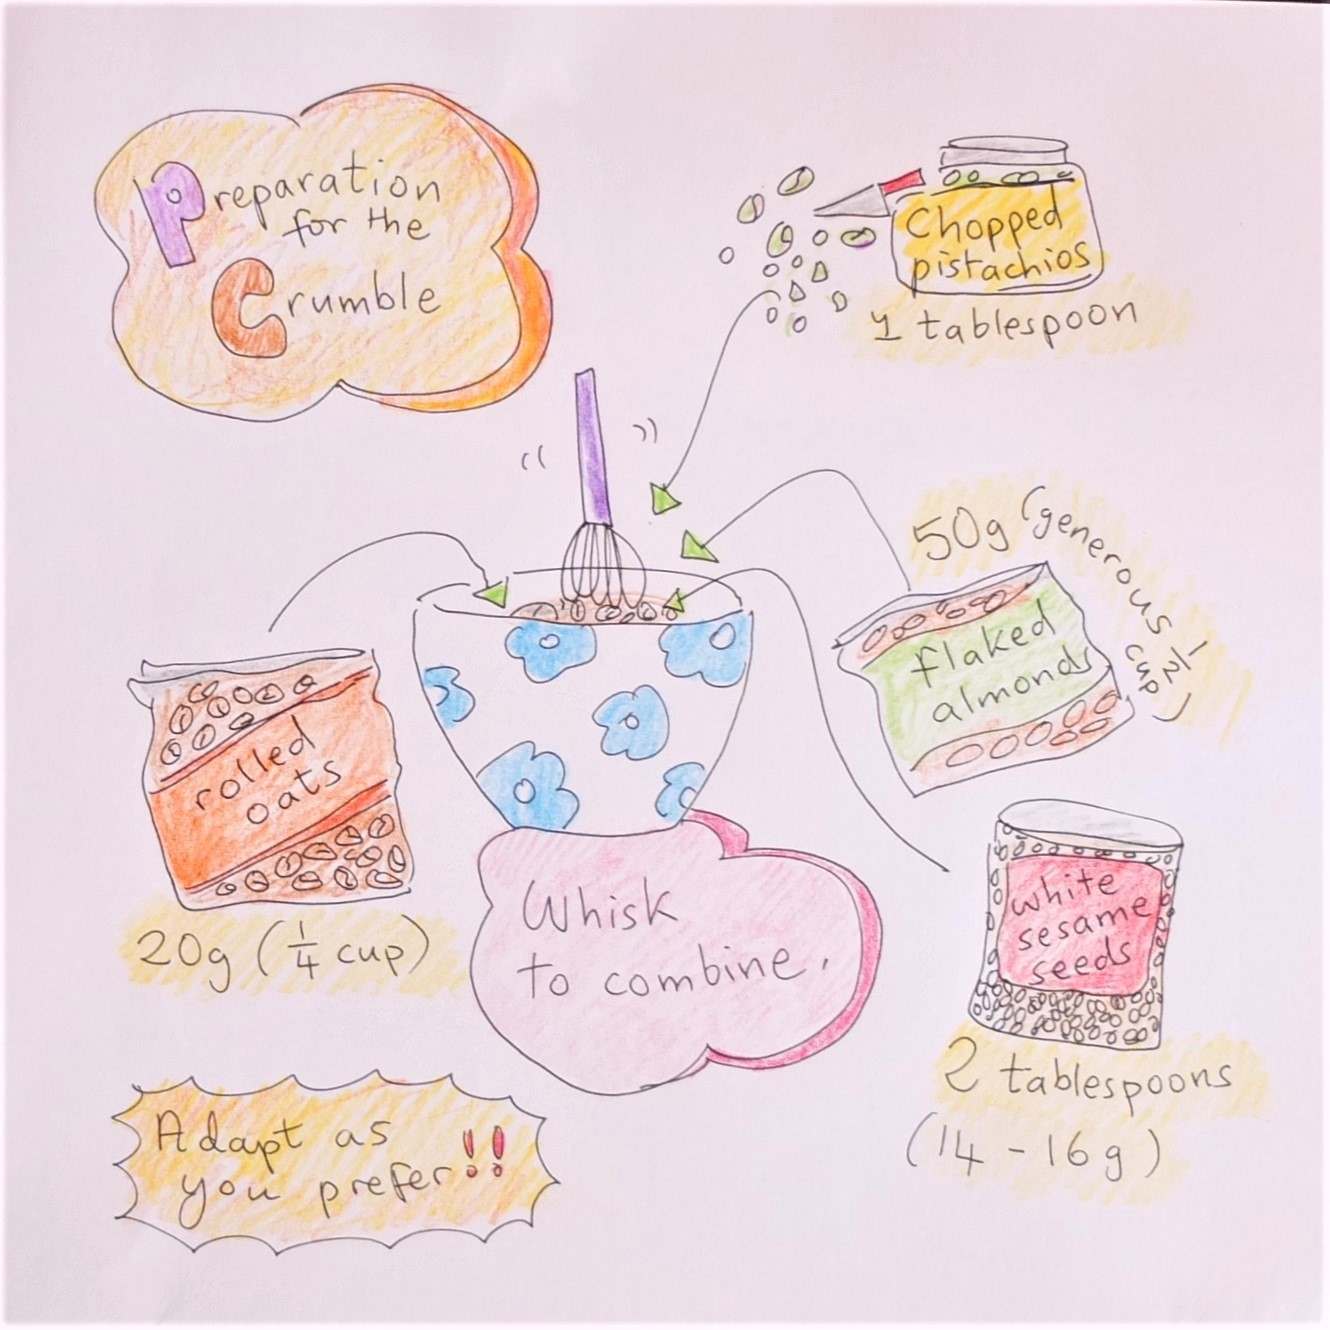 Preparation
for the
Crumble
Chopped
pistachios
1 tablespoon
50g (generous ½ cup)
flaked
almonds
rolled
oats
20g (¼ cup)
Whisk
to combine.
white
sesame
seeds
2 tablespoons
(14 - 16g)
Adapt as
you prefer!!